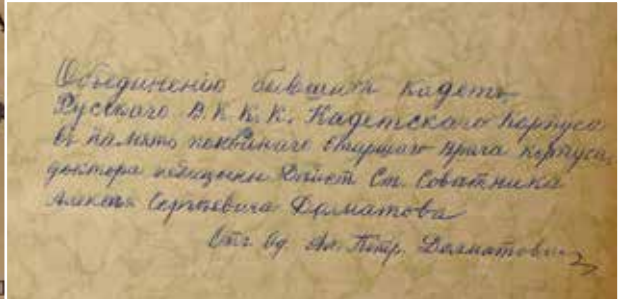 Объединенію бывшихъ кадетъ
Русскаго В. К. К. К. Кадетскаго Корпуса
въ память покойнаго старшаго врача корпуса,
доктора медицины Дѣйст. Ст. Совѣтника
Алексѣя Сергѣевича Долматова
Отъ Ал. Петр. Долматовой